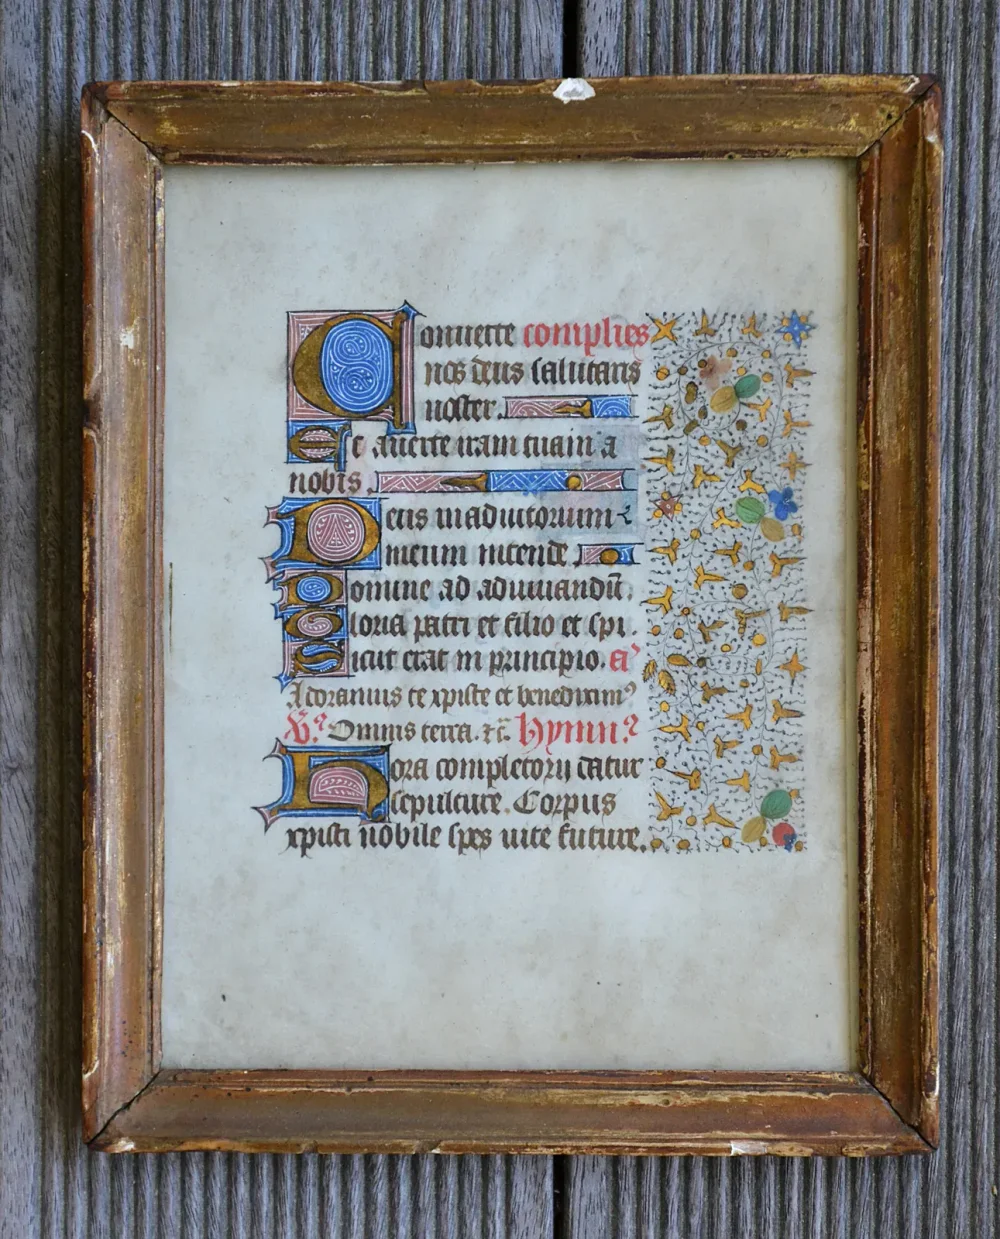 Conuerte complies
nos deus salutaris
noster.
Et auerte iram tuam a
nobis.
Deus in adiutorium
meum intende.
Domine ad adiuuandū
Gloria patri et filio et spi.
Sicut erat in principio. a'
Adoramus te xpiste et benedicim9
V9. Omnis terra. tc̄. Hymn9
Hora completorii datur
sepulture. Corpus
xpisti nobile spes uite future.